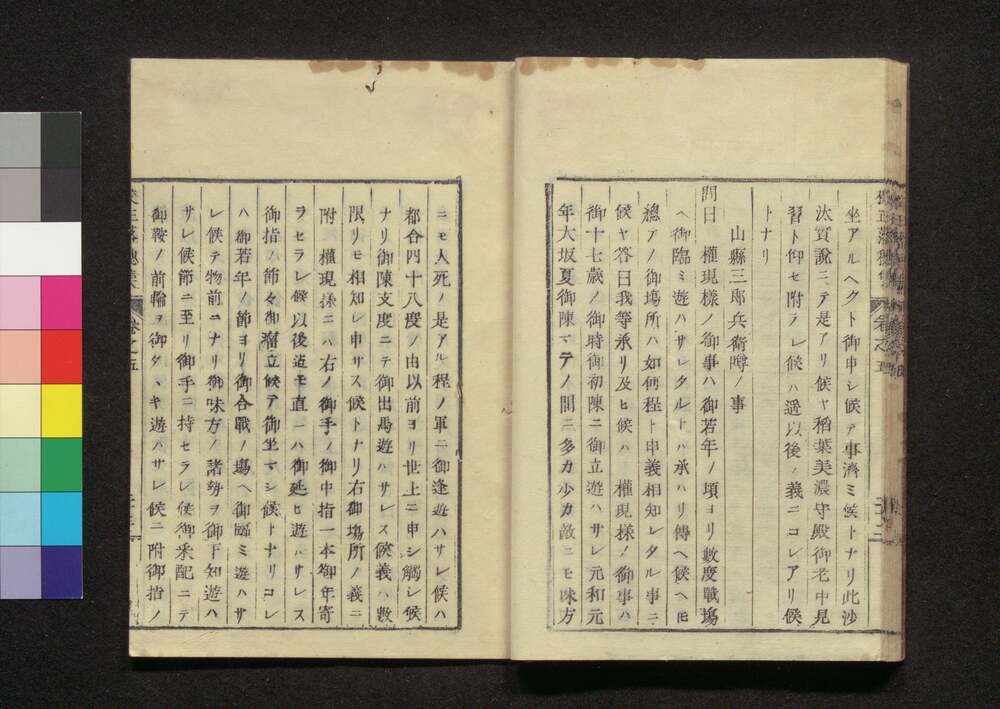 坐アルヘクト御申シ候テ事濟ミ候トナリ此沙
汰實說ニテ是アリ候ヤ稻葉美濃守殿御老中見
習ト仰セ附ラレ候ハ遥以後ノ義ニコレアリ候
トナリ
山縣三郎兵衛噂ノ事
問曰 權現樣ノ御事ハ御若年ノ頃ヨリ數度戰塲
ヘ御臨ミ遊ハサレタルトハ承ハリ傳ヘ候ヘ𪜈
總アノ御塲所ハ如何程ト申義相知レタル事ニ
候ヤ答曰我等承リ及ヒ候ハ 權現樣ノ御事ハ
御十七歲ノ御時御初陳ニ御立遊ハサレ元和元
年大坂夏御陳マテノ間ニ多カ少カ敵ニモ味方
ニモ人死ノ是アル程ノ軍ニ御逢遊ハサレ候ハ
都合四十八度ノ由以前ヨリ世上ニ申シ觸レ候
ナリ御陳支度ニテ御出馬遊ハサレス候義ハ數
限リモ相知レ申サス候トナリ右御塲所ノ義ニ
附 權現樣ニハ右ノ御手ノ御中指一本御年寄
ラセラレ候以後迄モ直ニハ御延ヒ遊ハサレス
御指ノ節々御立候テ御坐マシ候トナリコレ
ハ御若年ノ節ヨリ御合戰ノ塲ヘ御臨ミ遊ハサ
レ候テ物前ニナリ御味方ノ諸勢ヲ御下知遊ハ
サレ候節ニ至リ御手ニ持セラレ候御釆配ニテ
御鞍ノ前輪ヲ御タヽキ遊ハサレ候ニ附御指ノ
卷之五